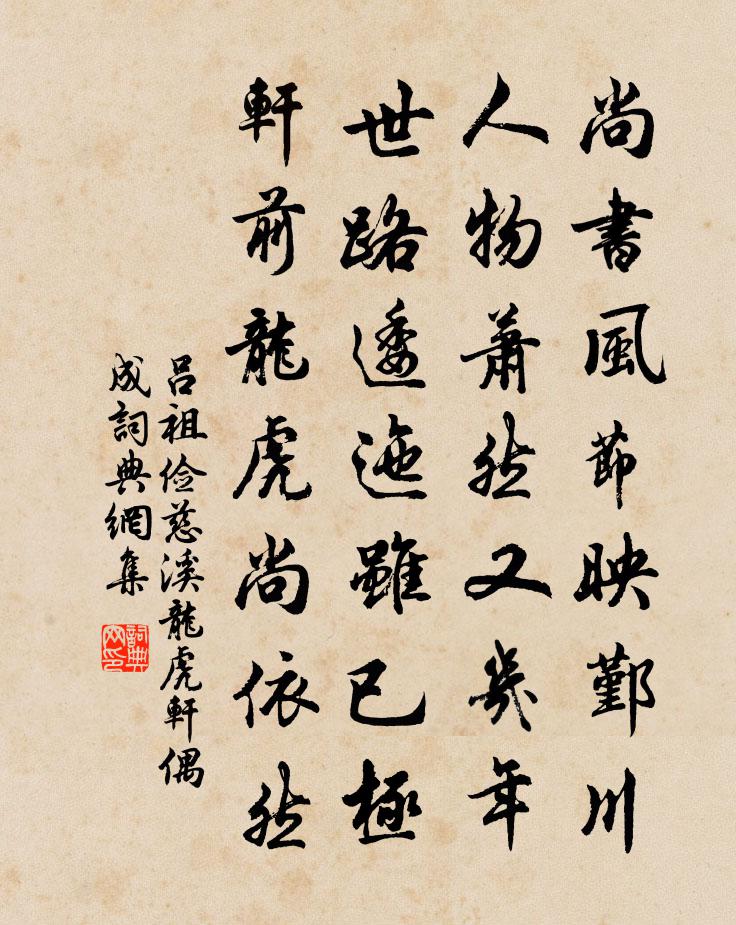 尚書風節映鄞川
人物蕭然又幾年
世路逶迤雖已極
軒前龍虎尚依然
呂祖儉慈溪龍虎軒偶
成詞典網集
詞典網印